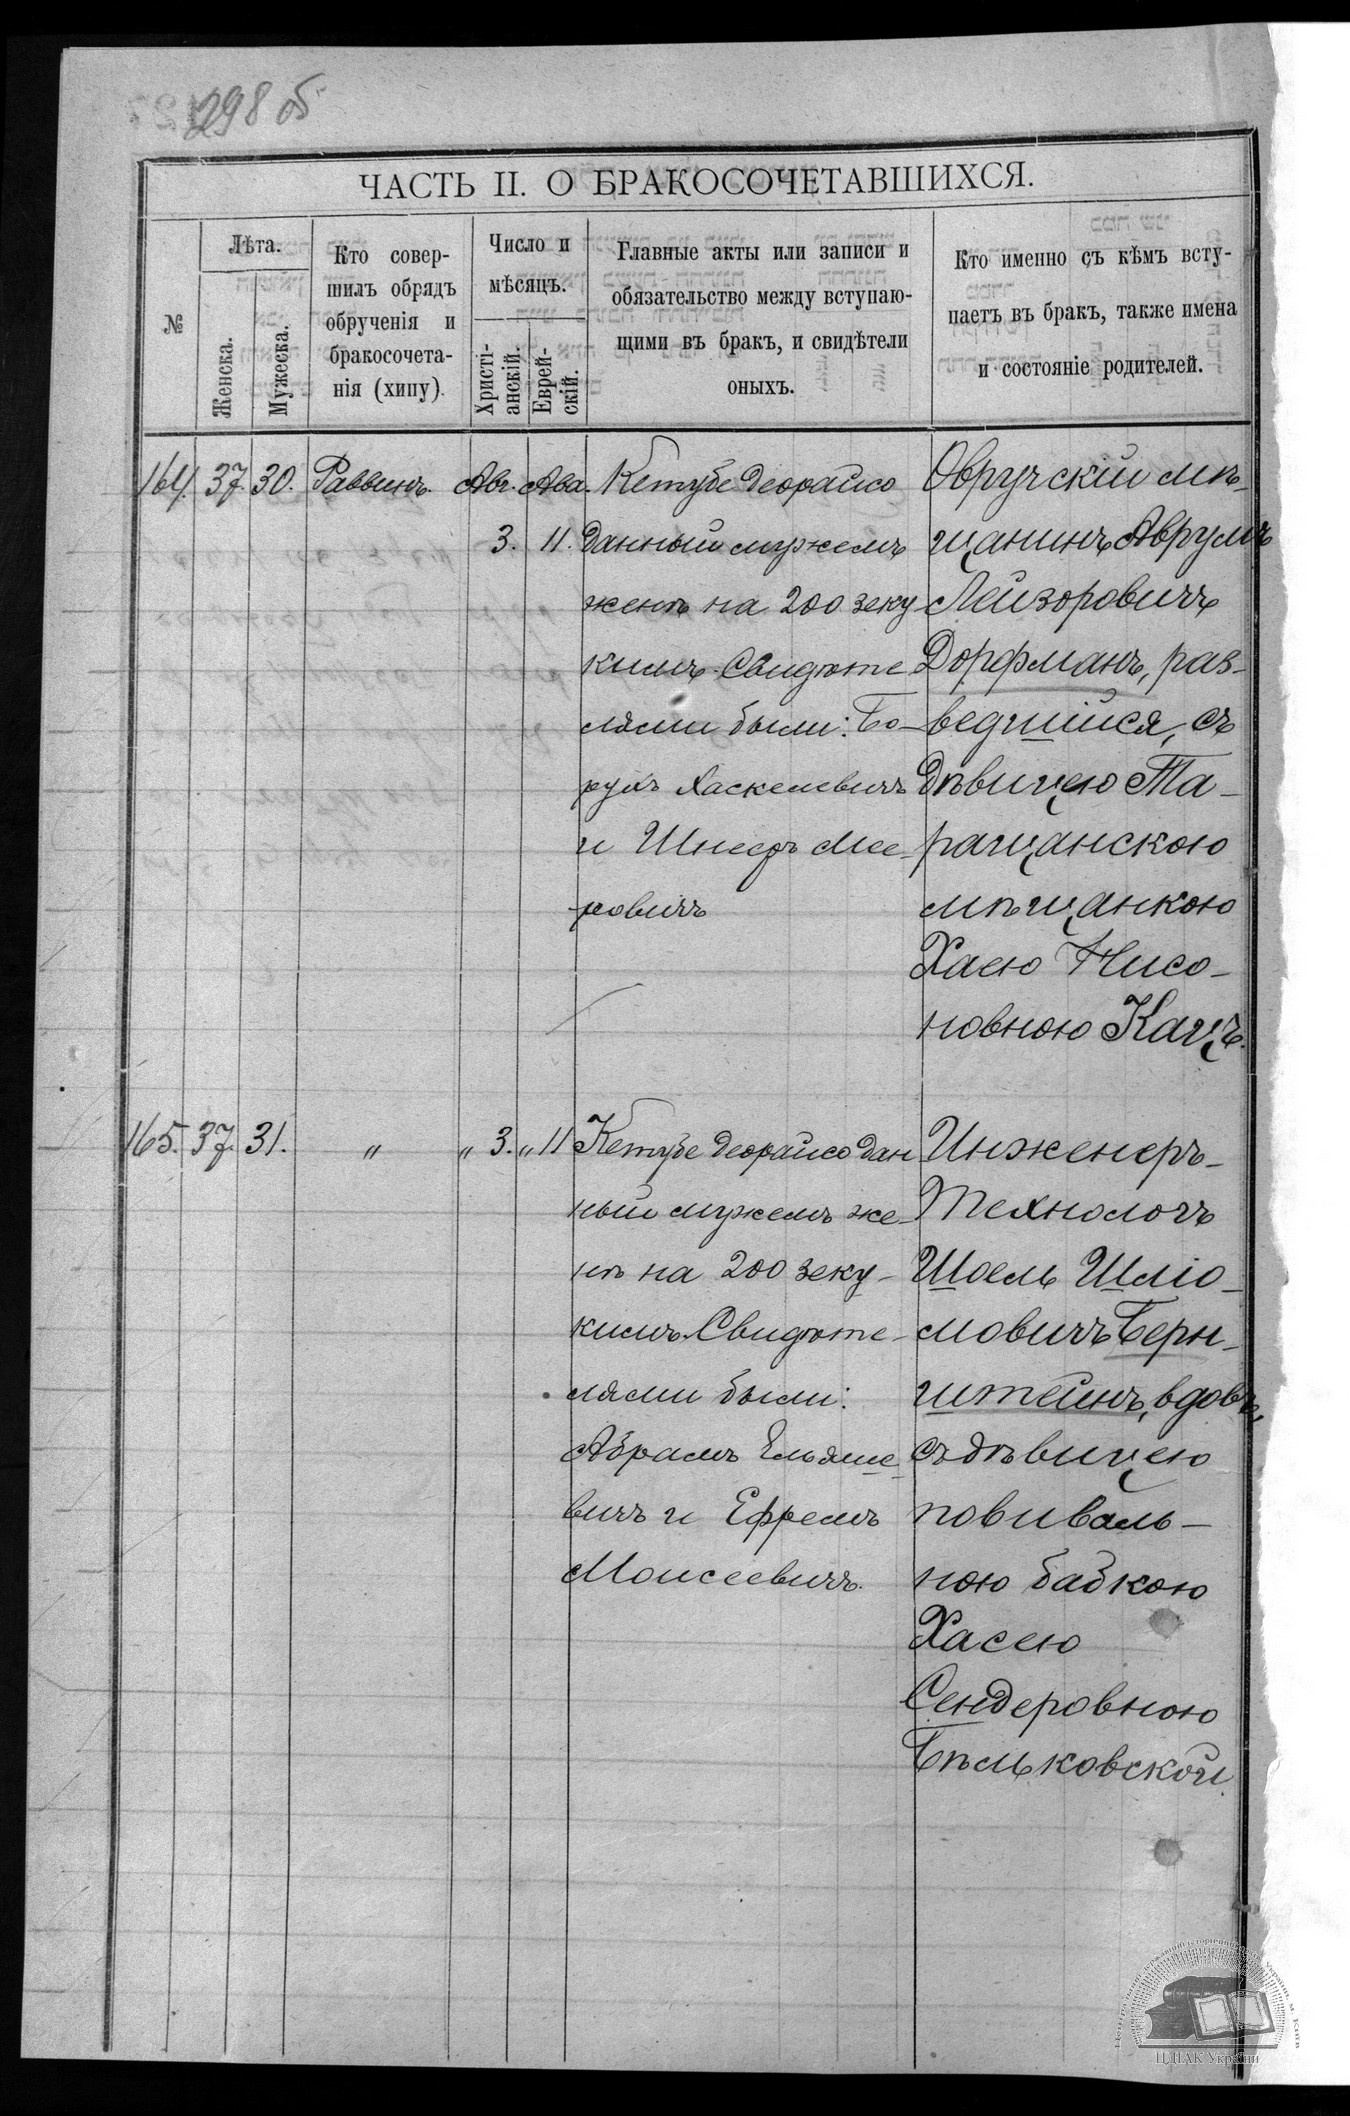 298 об
ЧАСТЬ II. О БРАКОСОЧЕТАВШИХСЯ.
№
Лѣта.
Женска.
Мужеска.
Кто совер-
шилъ обрядъ
обрученія и
бракосочета-
нія (хипу).
Число и
мѣсяцъ.
Христі-
анскій.
Еврей-
скій.
Главные акты или записи и
обязательство между вступаю-
щими въ бракъ, и свидѣтели
оныхъ.
Кто именно съ кѣмъ всту-
паетъ въ бракъ, также имена
и состояніе родителей.
164. 37. 30. Раввинъ. Авг. Ава.
3. 11.
Кетубе деорайсо
данный мужемъ
женѣ на 200 зеку
кимъ. Свидѣте
лями были: Бо-
рухъ Хаскелевичъ
и Шнеръ Мее-
ровичъ
Овручскій мѣ-
щанинъ Аврумъ
Лейзоровичъ
Дорфманъ, раз-
ведшійся, съ
дѣвицею Та-
ращанскою
мѣщанкою
Хаею Нисо-
новною Кацъ.
165. 37. 31. „ „ 3. „ 11
Кетубе деорайсо дан
ный мужемъ же-
нѣ на 200 зеку-
кимъ. Свидѣте-
лями были:
Абрамъ Ельяше-
вичъ и Ефремъ
Моисеевичъ.
Инженеръ-
Технологъ
Шоель Шліо-
мовичъ Берн-
штейнъ, вдовъ,
съ дѣвицею
повиваль-
ною бабкою
Хасею
Сендеровною
Бѣльковской.
ЦДІАК України